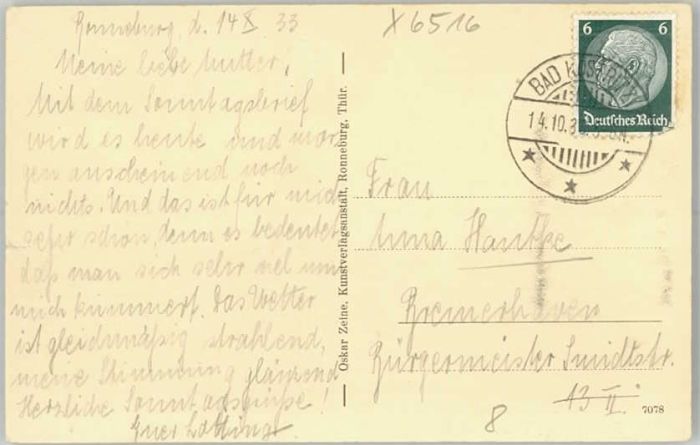 Ronneburg, d. 14 X 33
X6516
Meine liebe Mutter,
Mit dem Sonntagsbrief
wird es heute und mor-
gen anscheinend noch
nichts. Und das ist für mich
sehr schön, denn es bedeutet
daß man sich sehr viel um
mich kümmert. Das Wetter
ist gleichmäßig strahlend,
meine Stimmung glänzend
Herzliche Sonntagsgrüße!
Euer
Oskar Zeine, Kunstverlagsanstalt, Ronneburg, Thür.
6 6
Deutsches Reich
BAD KÖSTRITZ
14.10.3
Frau
Anna Hantke
Bremerhaven
Bürgermeister Smidtstr.
13 II.
8
7078